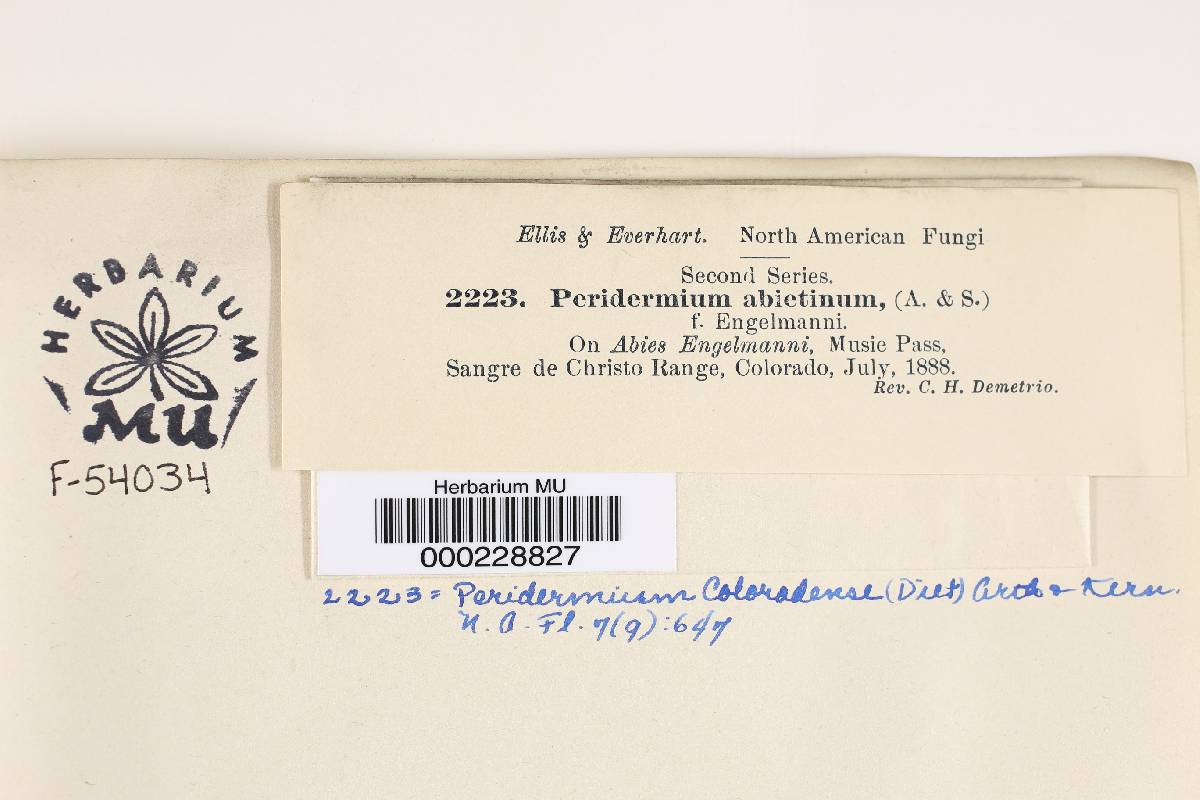 Ellis & Everhart. North American Fungi
Second Series.
2223. Peridermium abietinum, (A. & S.)
f. Engelmanni.
On Abies Engelmanni, Music Pass,
Sangre de Christo Range, Colorado, July, 1888.
Rev. C. H. Demetrio.
HERBARIUM
MU
F-54034
Herbarium MU
000228827
2223 = Peridermium Coloradense (Diet) Arth & Kern.
N. A. Fl. 7(9):647